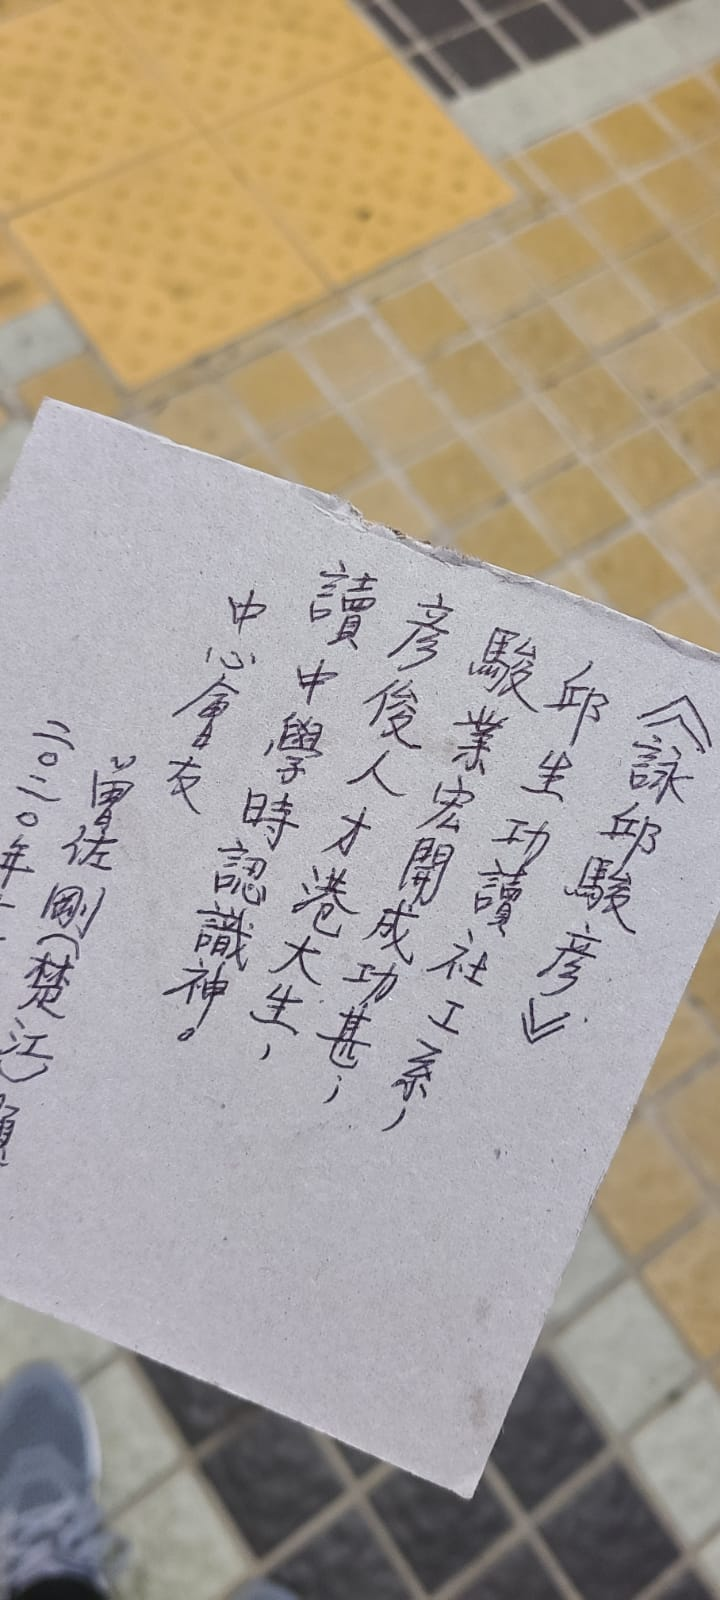 《詠邱駿彥》
邱生功讀社工系，
駿業宏開成功甚，
彥俊人才港大生，
讀中學時認識神。
中心會友
曾佐剛（楚江）題
二〇二〇年